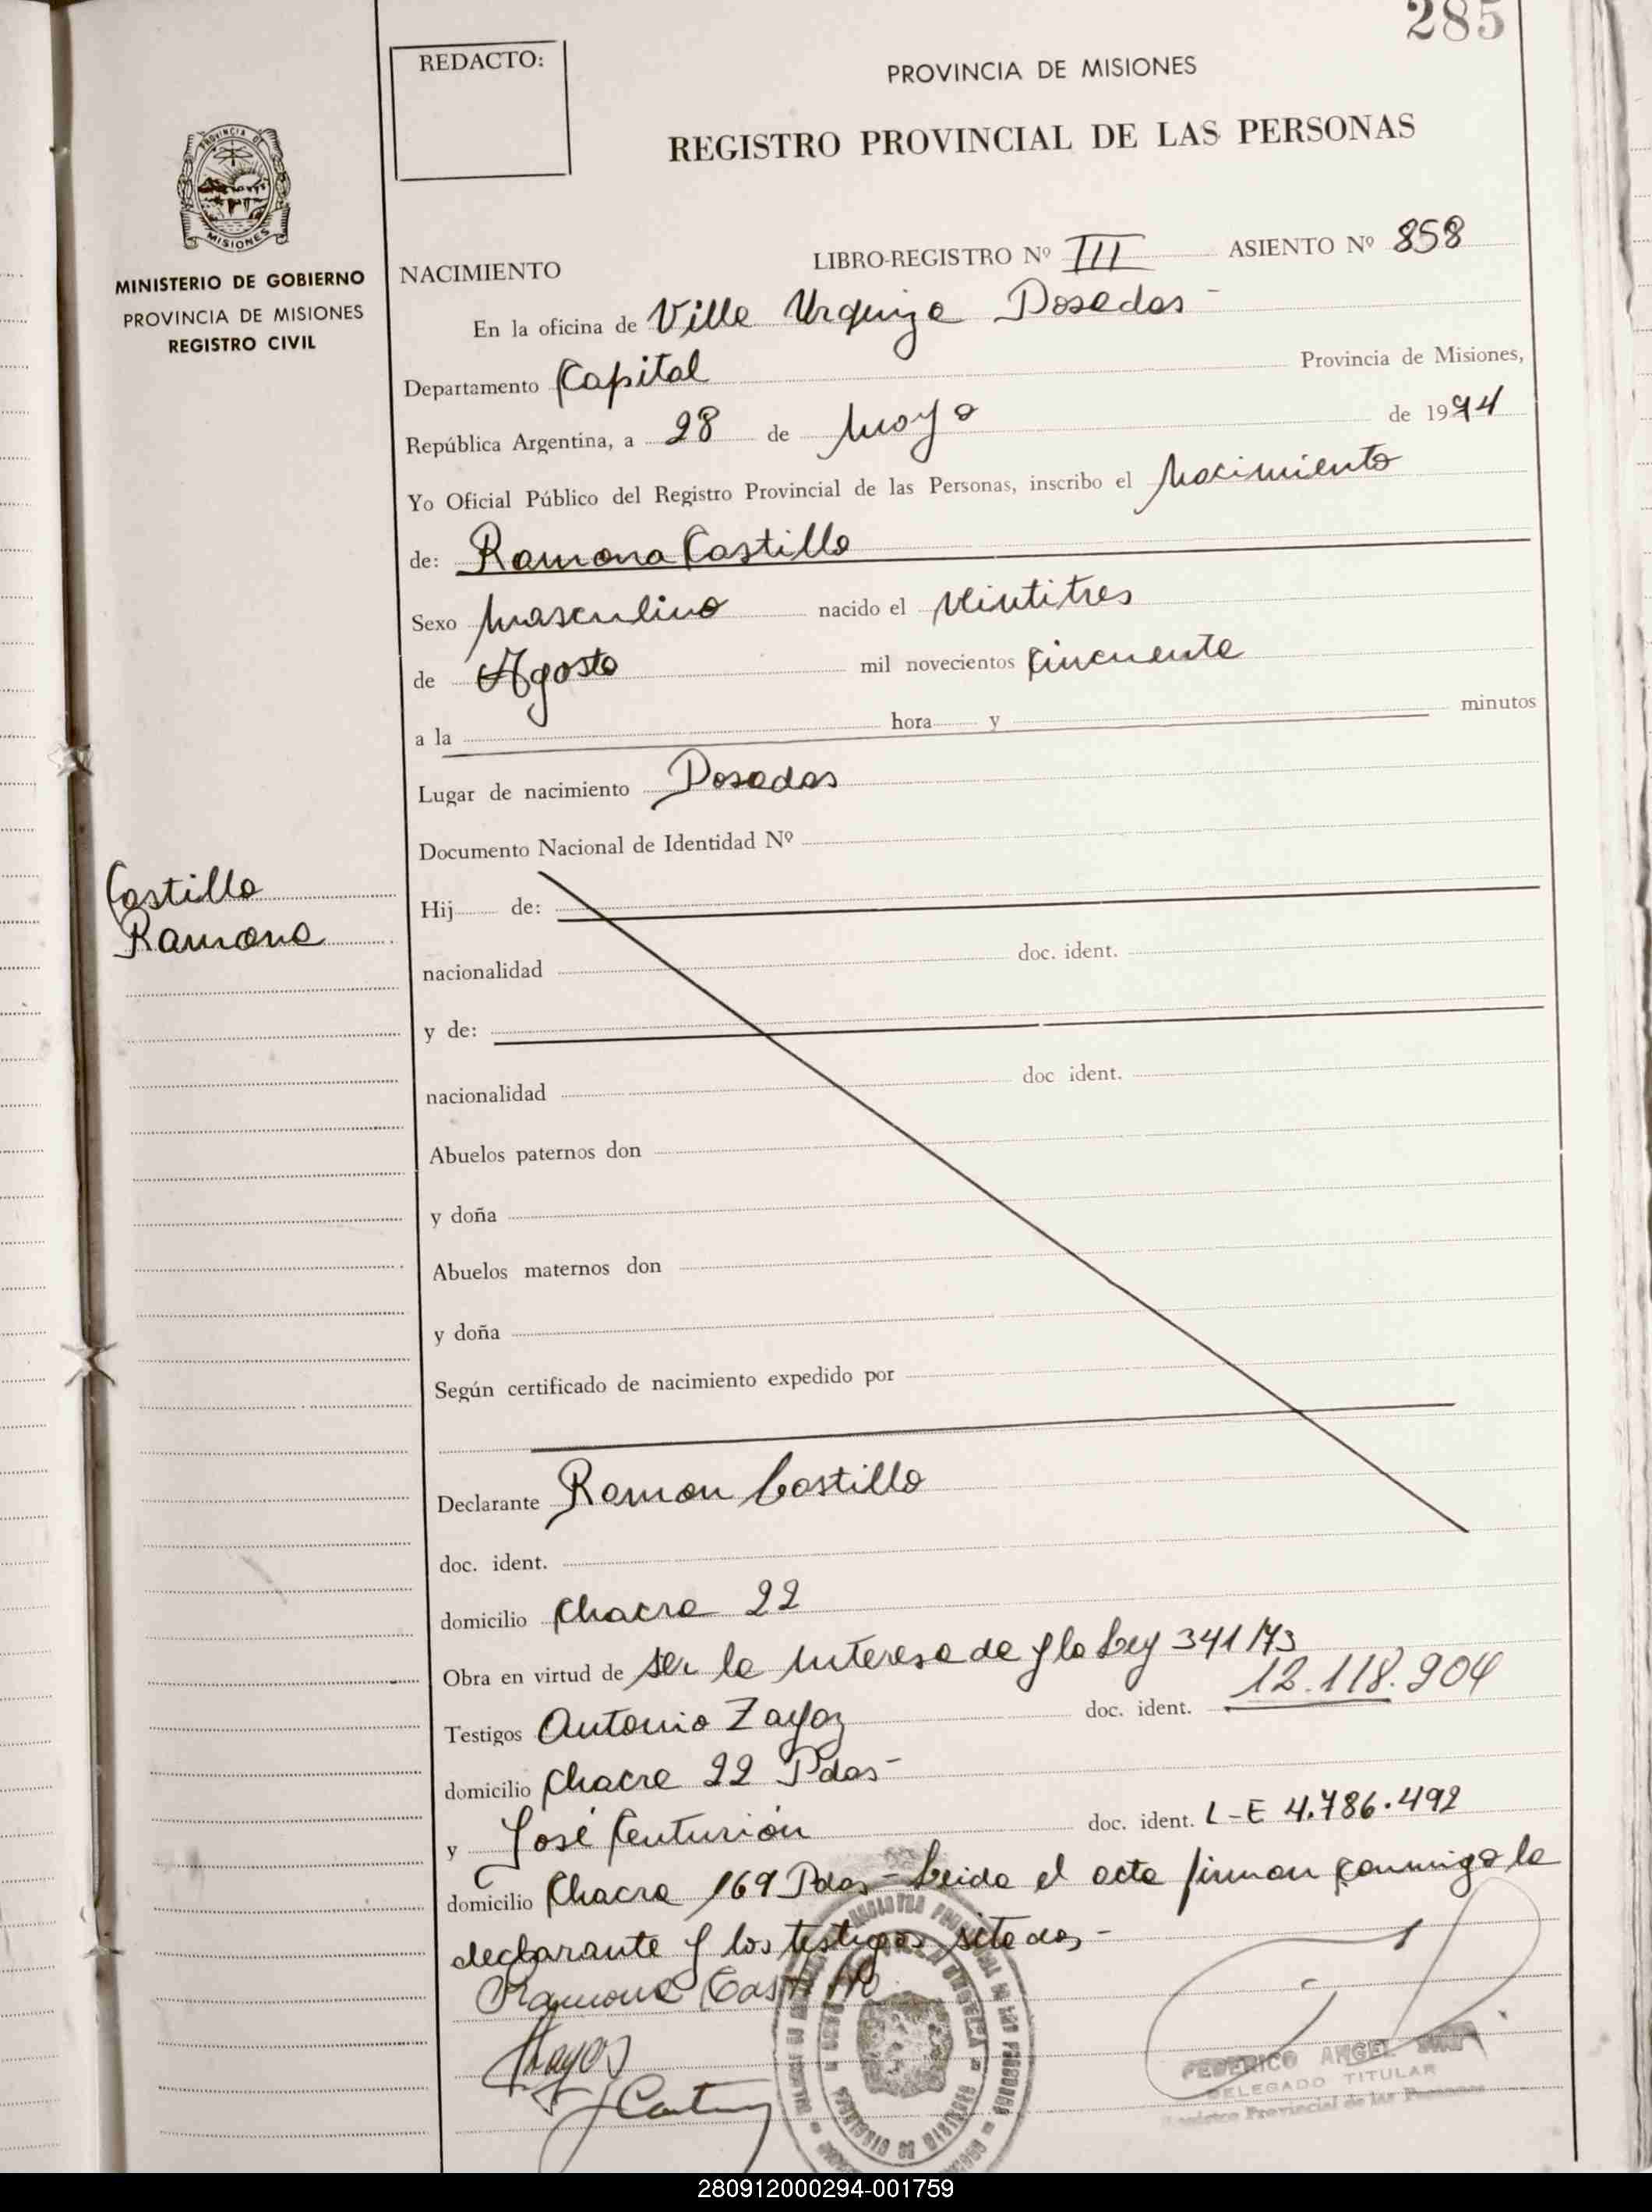 285
REDACTO:
PROVINCIA DE MISIONES
REGISTRO PROVINCIAL DE LAS PERSONAS
PROVINCIA DE
MISIONES
MINISTERIO DE GOBIERNO
PROVINCIA DE MISIONES
REGISTRO CIVIL
NACIMIENTO
LIBRO-REGISTRO Nº III ASIENTO Nº 858
En la oficina de Villa Urquiza Posadas -
Departamento Capital Provincia de Misiones,
República Argentina, a 28 de Mayo de 1974
Yo Oficial Público del Registro Provincial de las Personas, inscribo el Nacimiento
de: Ramona Castillo
Sexo Masculino nacido el Veintitres
de Agosto mil novecientos Cincuenta
a la hora y minutos
Lugar de nacimiento Posadas
Documento Nacional de Identidad Nº
Castillo
Ramona
Hij de:
nacionalidad doc. ident.
y de:
nacionalidad doc ident.
Abuelos paternos don
y doña
Abuelos maternos don
y doña
Según certificado de nacimiento expedido por
Declarante Ramon Castillo
doc. ident.
domicilio Chacra 22
Obra en virtud de ser la interesada y la Ley 341/73
Testigos Antonio Zayaz doc. ident. 12.118.904
domicilio Chacra 22 Pdas -
y José Centurión doc. ident. L-E 4.786.492
domicilio Chacra 169 Pdas - Leida el acta firman conmigo la
declarante y los testigos sitados -
Ramona Castillo
FEDERICO ANGEL
DELEGADO TITULAR
Registro Provincial de las Personas
280912000294-001759